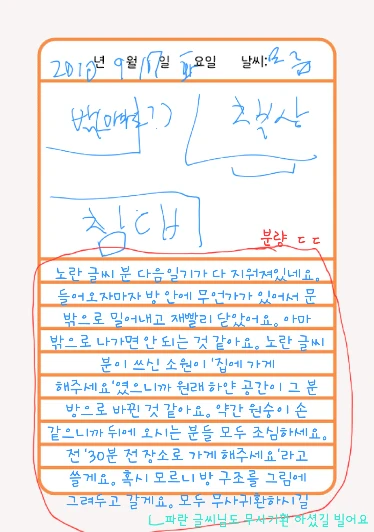 2010년 9월 17일 요일 날씨:모름
책상
침대
분량 ㄷㄷ
노란 글씨 분 다음 일기가 다 지워져있네요.
들어오자마자 방 안에 무언가가 있어서 문
밖으로 밀어내고 재빨리 닫았어요. 아마
밖으로 나가면 안 되는 것 같아요. 노란 글씨
분이 쓰신 소원이 '집에 가게
해주세요'였으니까 원래 하얀 공간이 그 분
방으로 바뀐 것 같아요. 약간 원숭이 손
같으니까 뒤에 오시는 분들 모두 조심하세요.
전 '30분 전 장소로 가게 해주세요'라고
쓸게요. 혹시 모르니 방 구조를 그림에
그려두고 갈게요. 모두 무사귀환하시길
파란 글씨님도 무사귀환 하셨길 빌어요